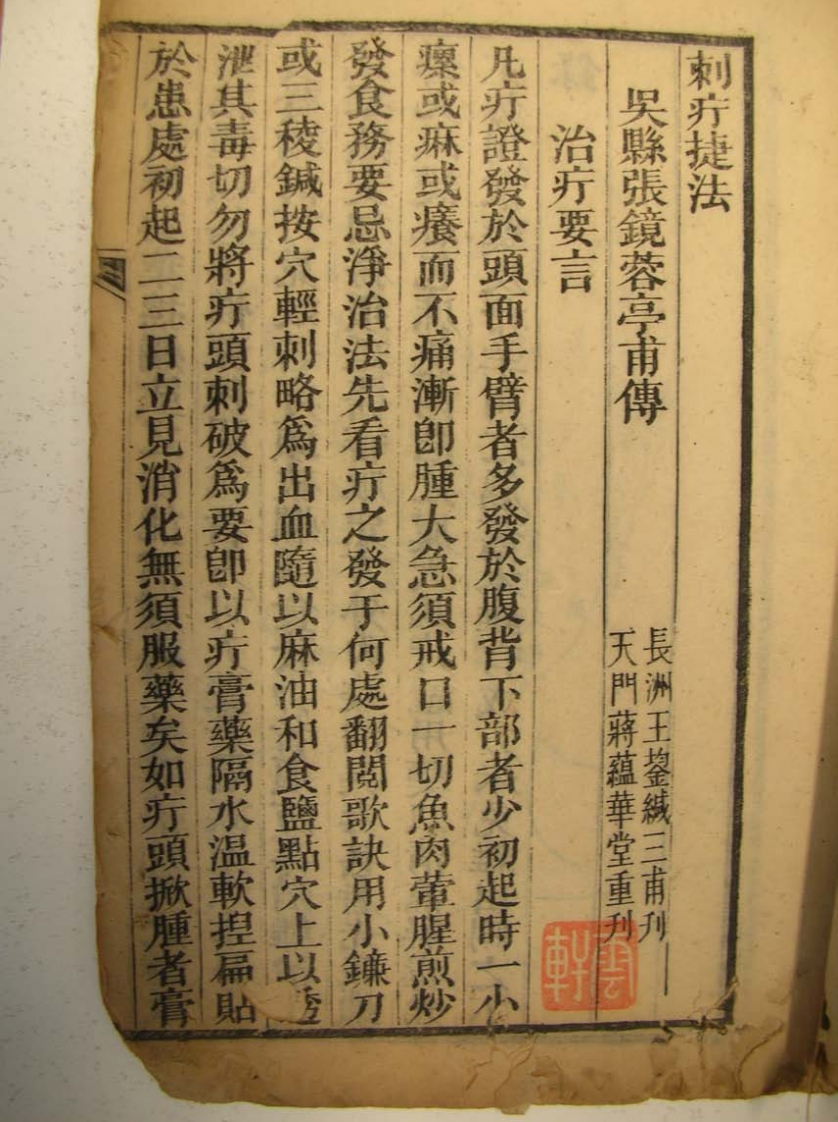 刺疔捷法
吳縣張鏡蓉亭甫傳
長洲王鋆緘三甫刋
天門蔣蘊華堂重刋
治疔要言
凡疔證發於頭面手臂者多發於腹背下部者少初起時一小
瘰或麻或癢而不痛漸卽腫大急須戒口一切魚肉葷腥煎炒
發食務要忌淨治法先看疔之發于何處翻閱歌訣用小鐮刀
或三稜鍼按穴輕刺略爲出血隨以麻油和食鹽點穴上以透
泄其毒切勿將疔頭刺破爲要卽以疔膏藥隔水温軟捏扁貼
於患處初起二三日立見消化無須服藥矣如疔頭掀腫者膏
雲軒